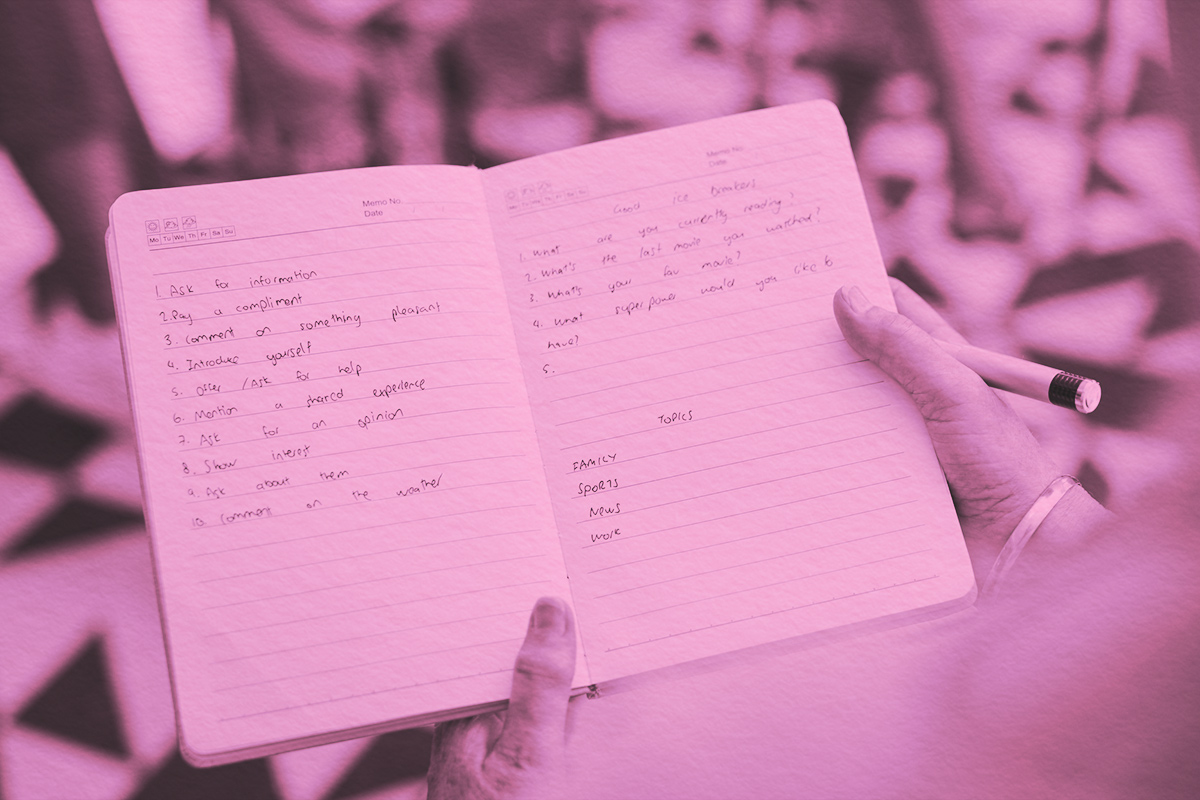 Memo No.
Date
Mo Tu We Th Fr Sa Su
1. Ask for information
2. Pay a compliment
3. Comment on something pleasant
4. Introduce yourself
5. Offer / Ask for help
6. Mention a shared experience
7. Ask for an opinion
8. Show interest
9. Ask about them
10. Comment on the weather
Memo No.
Date
Mo Tu We Th Fr Sa Su
Good ice breakers
1. What are you currently reading?
2. What's the last movie you watched?
3. What's your fav movie?
4. What superpower would you like to
have?
5.
TOPICS
FAMILY
SPORTS
News
Work